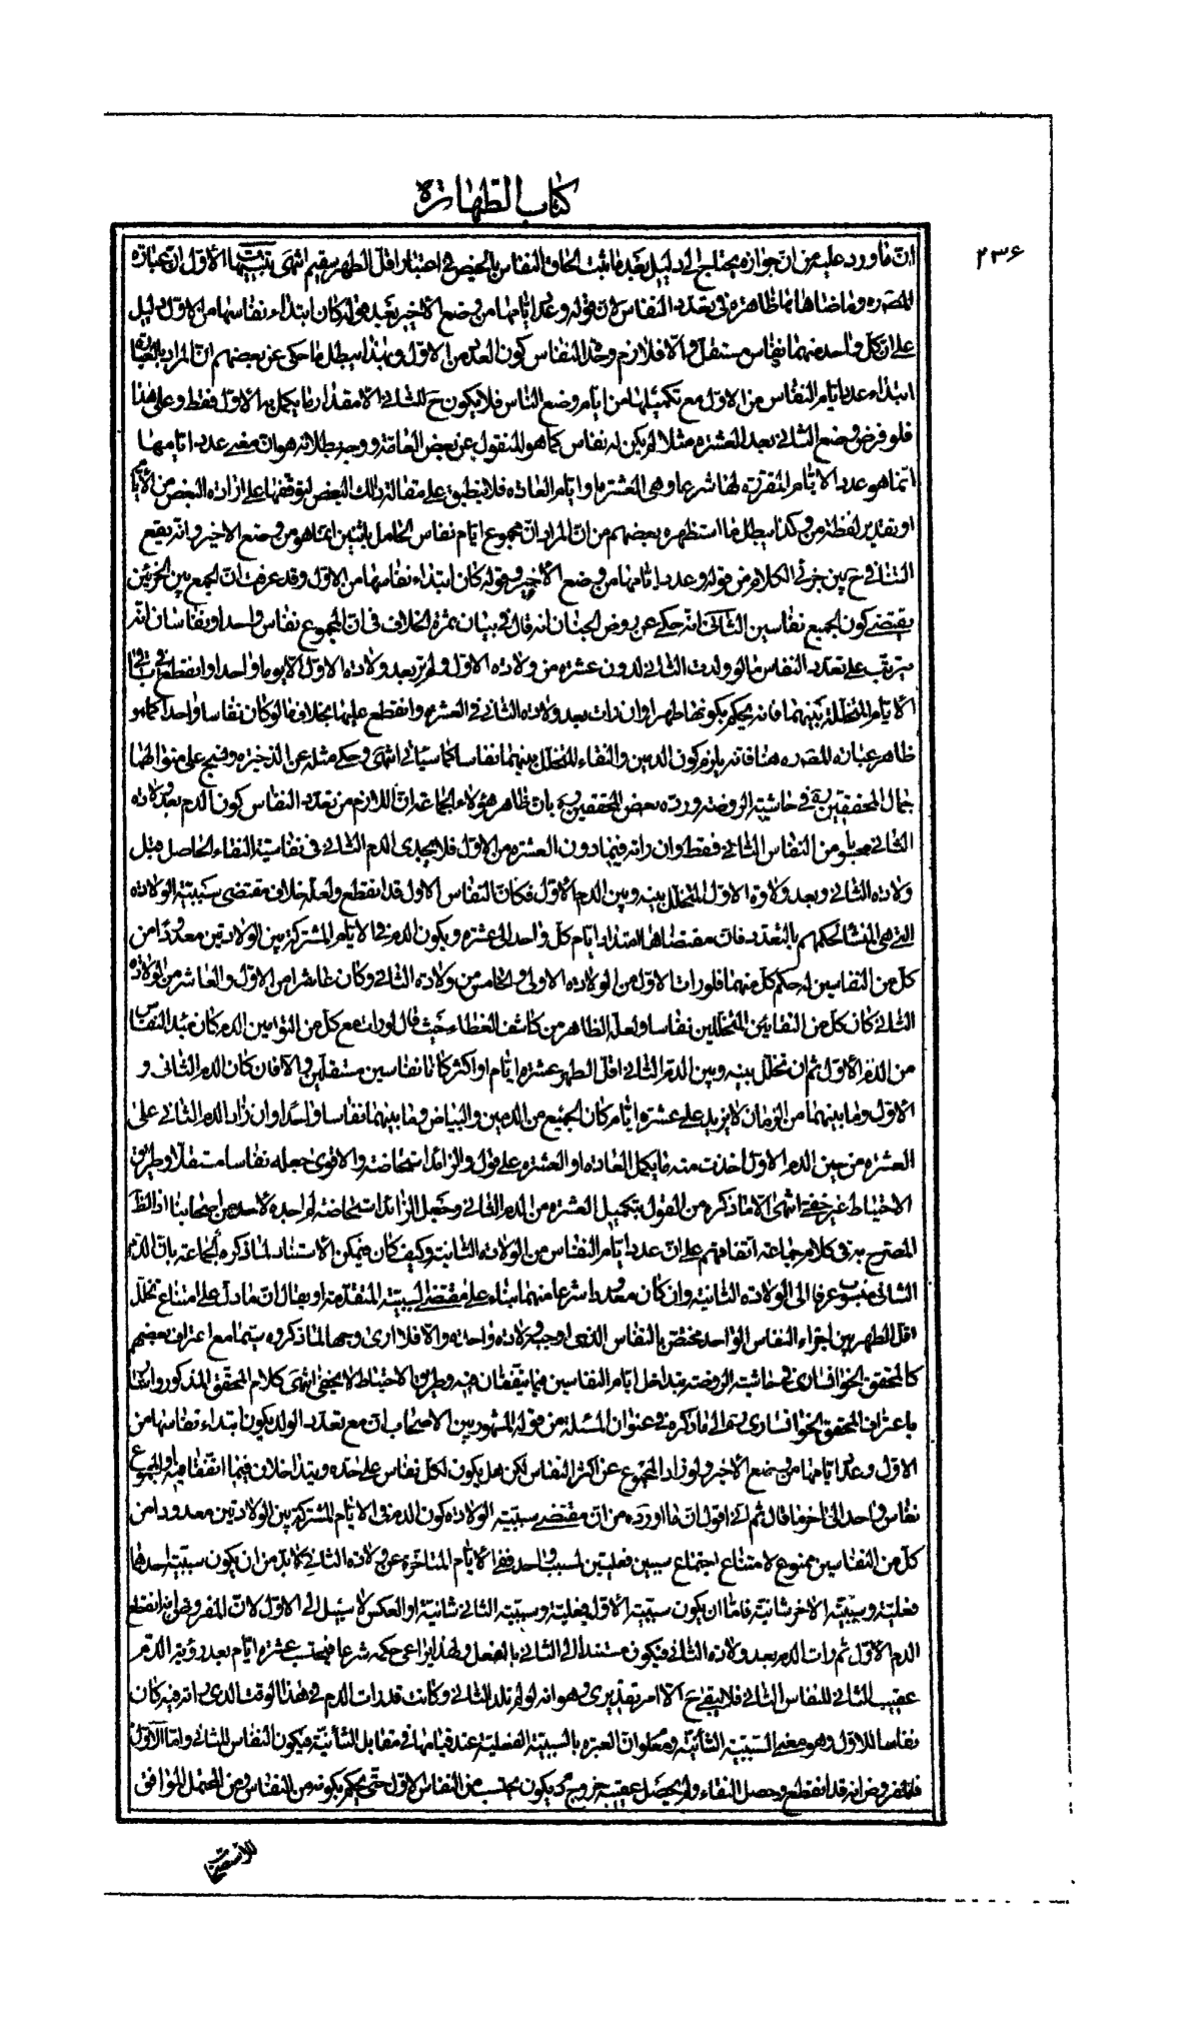 كتاب الطهارة
٢٣۶
ان ما ورد عليه من ان جوازه يحتاج الى دليل بعد ما ثبت الحاق النفاس بالحيض في اعتبار اقل الطهر سقيم انتهى تنبيهات الأول ان عبارة
المصنف ره وما ضاهاها ظاهرة في تعدد النفاس لان قوله وعدد ايامها من وضع الاخير بعد قوله كان ابتداء نفاسها من الاول دليل
على ان كل واحد منهما نفاس مستقل والا فلازم وحدة النفاس كون العدد من الاول وبهذا يبطل ما حكى عن بعضهم ان المراد بالعبارة
ابتداء عدد ايام النفاس من الاول مع تكميلها من ايام وضع الثاني فلا يكون ح للثاني الا مقدار ما يكمل به الاول فقط وعلى هذا
فلو فرض وضع الثاني بعد العشرة مثلا لم يكن له نفاس كما هو المنقول عن بعض العامة ووجه بطلانه هو ان معنى عدد ايامها
انما هو عدد الايام المقررة لها شرعا وهي العشرة او ايام العادة فلا ينطبق على مقالة ذلك البعض لتوقفها على ارادة البعض من الأيام
او تقدير لفظة من وكذا يبطل ما استظهره بعضهم من ان المراد ان مجموع ايام نفاس الحامل باثنين انما هو من وضع الاخير وانه يقع
التنافي ح بين جزئي الكلام من قوله وعدد ايامها من وضع الأخير وقوله كان ابتداء نفاسها من الاول وقد عرفت ان الجمع بين الجزئين
يقتضي كون الجميع نفاسين الثاني انه حكي عن روض الجنان انه قال في بيان ثمرة الخلاف في ان المجموع نفاس واحد او نفاسان انه
يترتب على تعدد النفاس ما لو ولدت الثاني لدون عشرة من ولادة الاول ولم تر بعد ولادة الاول الا يوما واحدا وانقطع في باقي
الأيام المتخللة بينهما فانه يحكم بكونها طهرا وان رات بعد ولادة الثاني في العشرة وانقطع عليها بخلاف ما لو كان نفاسا واحدا كما هو
ظاهر عبارة المصنف ره هنا فانه يلزم كون الدمين والنقاء المتخلل بينهما نفاسا كما سيأتي انتهى وحكي مثله عن الذخيرة ونسج على منوالهما
جمال المحققين ره في حاشية الروضة ورده بعض المحققين ره بان ظاهر هؤلاء الجماعة ان اللازم من تعدد النفاس كون الدم بعد ولادة
الثاني من النفاس الثاني فقط وان راته فيما دون العشرة من الاول فلا يجدي الدم الثاني في نفاسية النقاء الحاصل قبل
ولادة الثاني وبعد ولادة الاول المتخلل بينه وبين الدم الأول فكان النفاس الاول قد انقطع ولعله خلاف مقتضى سببية الولادة
التي هي المنشأ لحكمهم بالتعدد فان مقتضاها امتداد ايام كل واحد الى عشرة ويكون الدم في الايام المشتركة بين الولادتين معدودا من
كل من النفاسين له حكم كل منهما فلو رات الاول من الولادة الاولى والخامس من ولادة الثاني وكان عاشرا من الاول والعاشر من الولادة
الثاني كان كل من النقائين المتخللين نفاسا ولعله الظاهر من كاشف الغطاء حيث قال لو رات مع كل من التوأمين الدم كان مبدأ النفاس
من الدم الأول ثم ان تخلل بينه وبين الدم الثاني اقل الطهر عشرة ايام او اكثر كانا نفاسين مستقلين والا فان كان الدم الثاني و
الأول وما بينهما من الزمان لا يزيد على عشرة ايام كان الجميع من الدمين والبياض وما بينهما نفاسا واحدا وان زاد الدم الثاني على
العشرة من حين الدم الاول اخذت منه ما يكمل العادة او العشرة على قول والزائد استحاضة والاقوى جعله نفاسا مستقلا وطريق
الاحتياط غير خفي انتهى الا ما ذكره من القول بتكميل العشرة من الدم الثاني وجعل الزائد استحاضة لم اجده لأحد من اصحابنا اذ الظ
المصرح به في كلام جماعة اتفاقهم على ان عدد ايام النفاس من الولادة الثانية وكيف كان فيمكن الاستناد لما ذكره الجماعة بان الدم
الثاني منسوب عرفا الى الولادة الثانية وان كان معدودا شرعا منهما بناء على مقتضى السببية المتقدمة او يقال ان ما دل على امتناع تخلل
اقل الطهر بين اجزاء النفاس الواحد مختص بالنفاس الذي اوجبه ولادة واحدة والا فلا ارى وجها لما ذكروه سيما مع اعتراف بعضهم
كالمحقق الخوانساري في حاشية الروضة بتداخل ايام النفاسين فيما يتفقان فيه وطريق الاحتياط لا يخفى انتهى كلام المحقق المذكور واشار
باعتراف المحقق الخوانساري ره الى ما ذكره في عنوان المسئلة من قوله المشهور بين الاصحاب ان مع تعدد الولد يكون ابتداء نفاسها من
الاول وعدد ايامها من وضع الأخير ولو زاد المجموع عن اكثر النفاس لكن هل يكون لكل نفاس على حده ويتداخلان فيما اتفقا فيه او المجموع
نفاس واحد الى اخر ما قال ثم اني اقول ان ما اورده من ان مقتضى سببية الولادة كون الدم في الايام المشتركة بين الولادتين معدودا من
كل من النفاسين ممنوع لامتناع اجتماع سببين فعليتين لمسبب واحد ففي الأيام المتاخرة عن ولادة الثاني لا بد من ان يكون سببية احدهما
فعلية وسببية الاخر شانية فاما ان يكون سببية الأول فعلية وسببية الثاني شانية او العكس لا سبيل الى الاول لان المفروض انه انقطع
الدم الأول ثم رات الدم بعد ولادة الثاني فيكون مستندا الى الثاني بالفعل ولهذا يراعى حكمه شرعا فيحتسب عشرة ايام بعد رؤية الدم
عقيب الثاني للنفاس الثاني فلا يبقى ح الا امر تقديري وهو انه لو لم تلد الثاني وكانت قد رات الدم في هذا الوقت الذي راته فيه كان
نفاسا للاول وهو معنى السببية الشأنية ومعلوم ان العبرة بالسببية الفعلية عند قيامها في مقابل الشأنية فيكون النفاس للثاني واما الأول
فالمفروض انه قد انقطع وحصل النقاء ولم يحصل عقيبه خروج دم يكون يحتسب من النفاس الاول حتى يحكم بكونه من النفاس ومن المحتمل الموافق